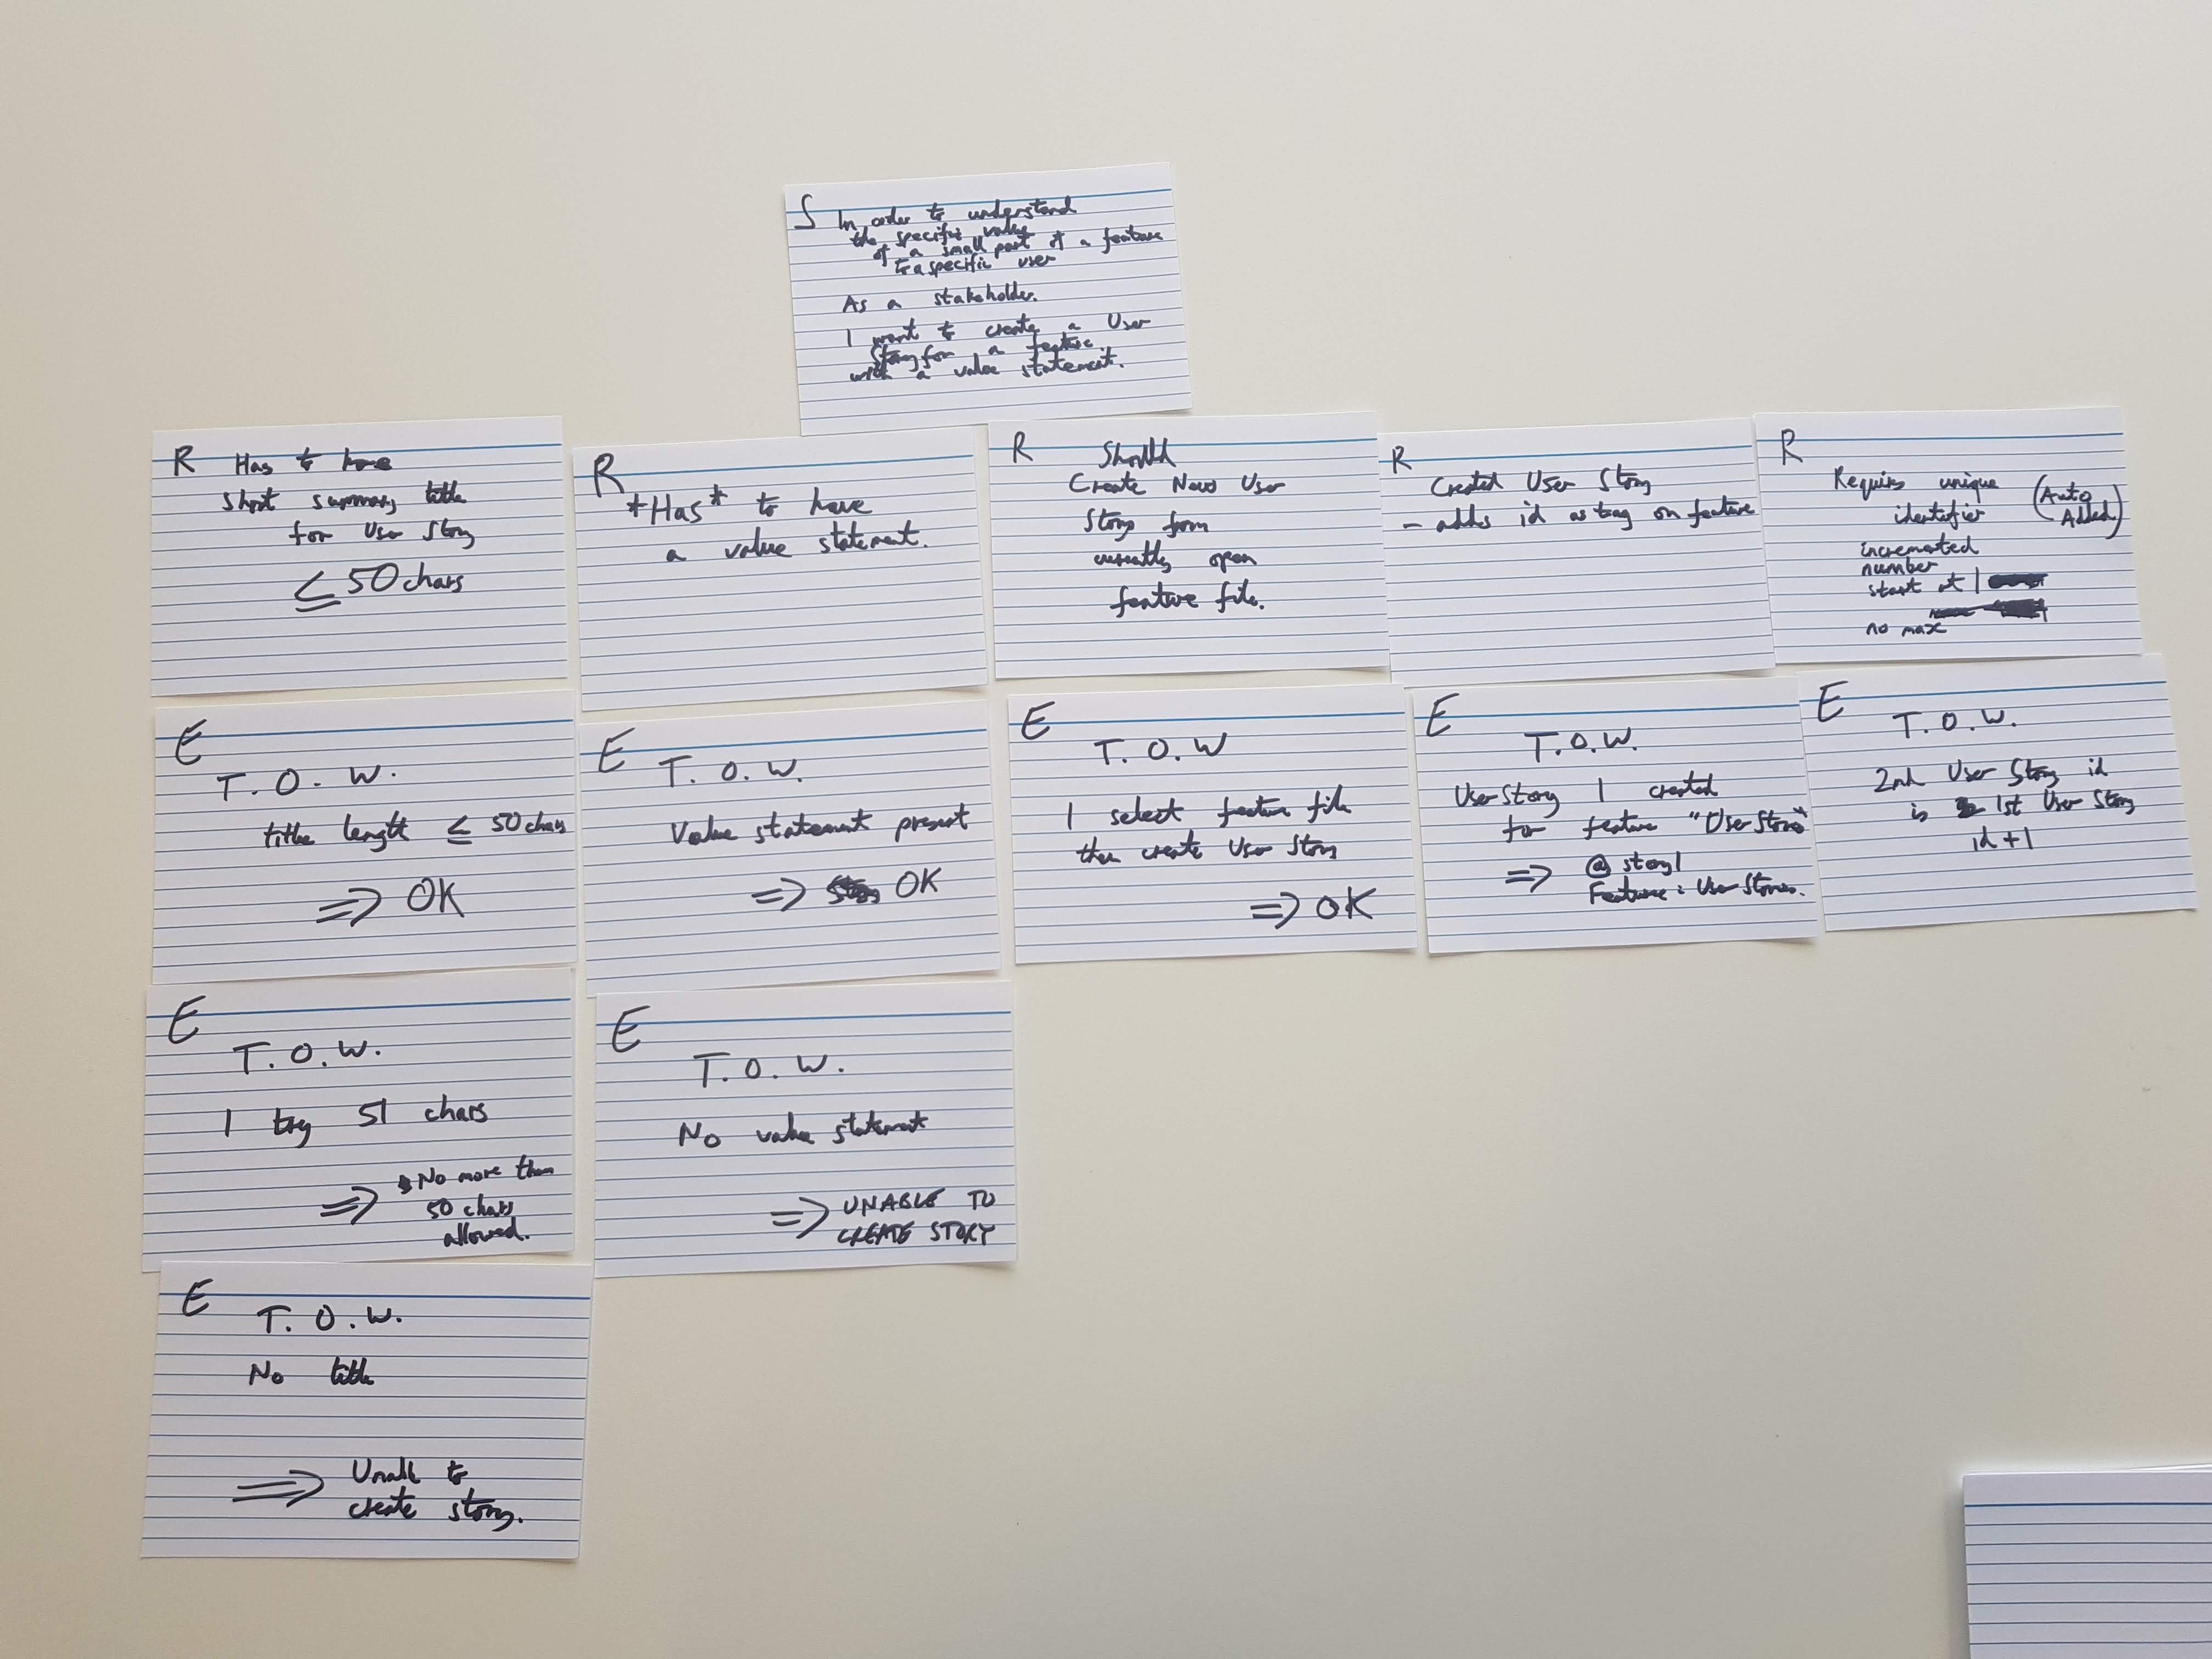 S In order to understand
the specific value
of a small part of a feature
to a specific user
As a stakeholder.
I want to create a User
Story for a feature
with a value statement.
R Has to have
short summary title
for User Story
≤ 50 chars
R
*Has* to have
a value statement.
R Should
Create New User
Story from
currently open
feature file.
R
Created User Story
- adds id as tag on feature
R
Requires unique
identifier
(Auto
Added)
incremented
number
start at 1
no max
E
T. O. W.
title length ≤ 50 chars
⇒ OK
E T. O. W.
Value statement present
⇒ OK
E
T. O. W
I select feature file
then create User Story
⇒ OK
E
T.O.W.
User Story 1 created
for feature "User Stories"
⇒ @story1
Feature: User Stories.
E
T. O. W.
2nd User Story id
is 1st User Story
id +1
E
T. O. W.
I try 51 chars
⇒ No more than
50 chars
allowed.
E
T. O. W.
No value statement
⇒ UNABLE TO
CREATE STORY
E
T. O. W.
No title
⇒ Unable to
create story.